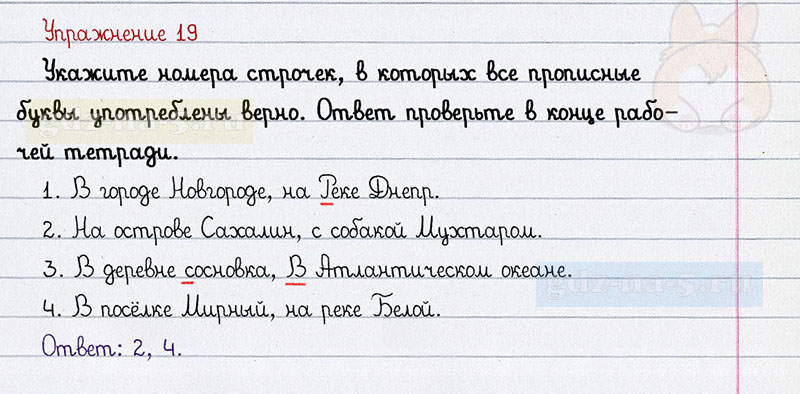 Упражнение 19
Укажите номера строчек, в которых все прописные
буквы употреблены верно. Ответ проверьте в конце рабо-
чей тетради.
1. В городе Новгороде, на Реке Днепр.
2. На острове Сахалин, с собакой Мухтаром.
3. В деревне сосновка, В Атлантическом океане.
4. В посёлке Мирный, на реке Белой.
Ответ: 2, 4.
gdz-na-5.ru
gdz-na-5.ru